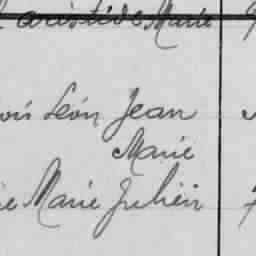 aristide Marie
Léon Jean
Marie
Marie Julien